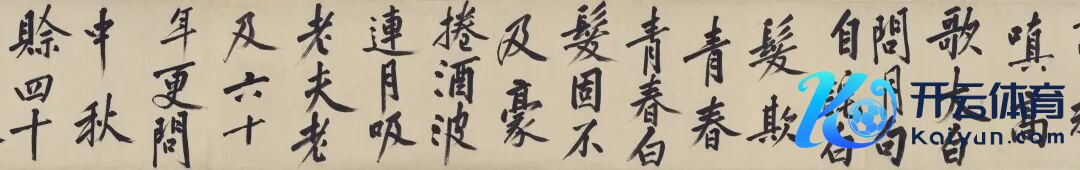 嗔
歌太白
問月句
自白
髮欺
青春
青春白
髮固不
及豪
捲酒波
連月吸
老夫老
及六十
年更問
中秋
賒四十
开云体育
Kaiyun.com